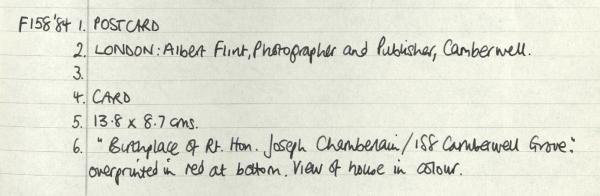 F158'84 1. POSTCARD
2. LONDON: Albert Flint, Photographer and Publisher, Camberwell.
3.
4. CARD
5. 13.8 x 8.7 cms.
6. "Birthplace of Rt. Hon. Joseph Chamberlain/188 Camberwell Grove."
overprinted in red at bottom. View of house in colour.